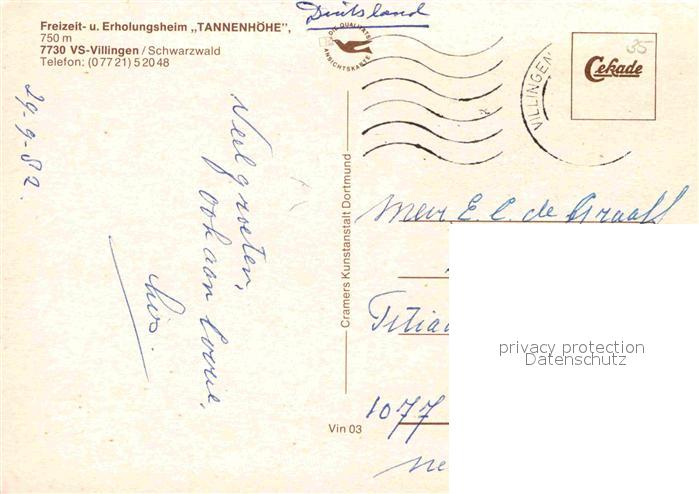 Deutsland
Freizeit- u. Erholungsheim „TANNENHÖHE",
750 m
7730 VS-Villingen / Schwarzwald
Telefon: (0 77 21) 5 20 48
DIE QUALITÄTS
ANSICHTSKARTE
VILLINGEN
35
Cekade
29-9-82.
Veel groeten,
ook aan
Cramers Kunstanstalt Dortmund
Mevr. E. C. de Graaff
Titia
1077
Ne
Vin 03
privacy protection
Datenschutz